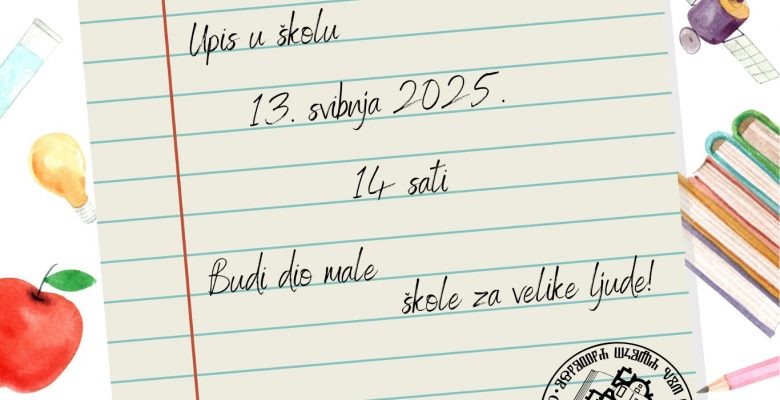 Upis u školu
13. svibnja 2025.
14 sati
Budi dio male
škole za velike ljude!